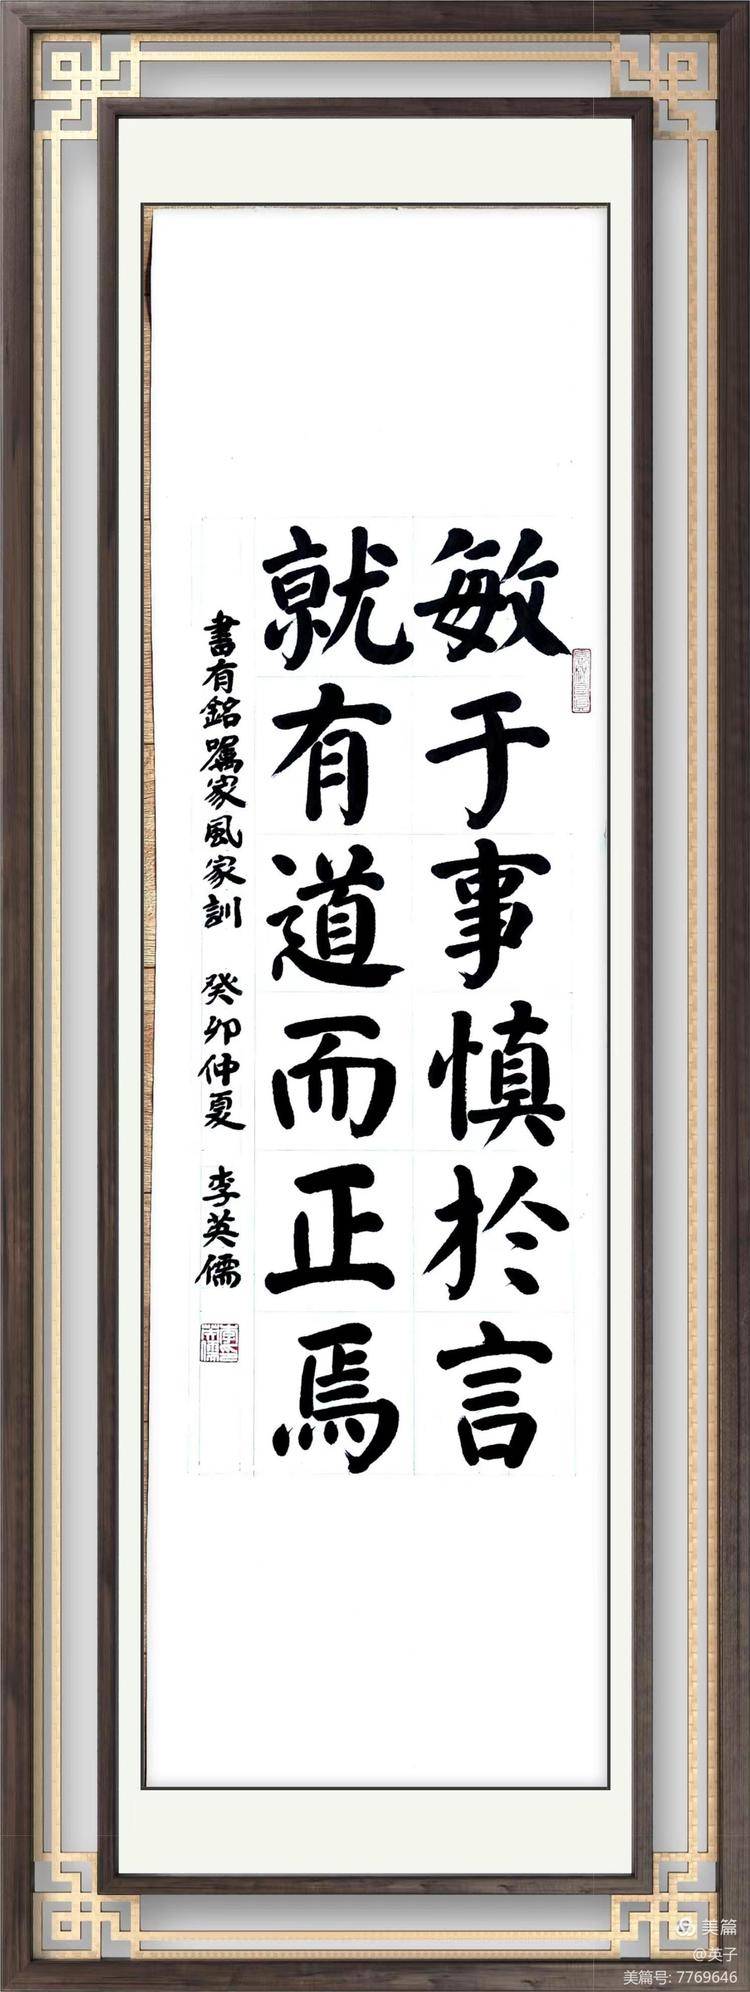 敏于事慎於言
就有道而正焉
書有銘屬家風家訓 癸卯仲夏 李英儒
美篇
@英子
美篇号: 7769646